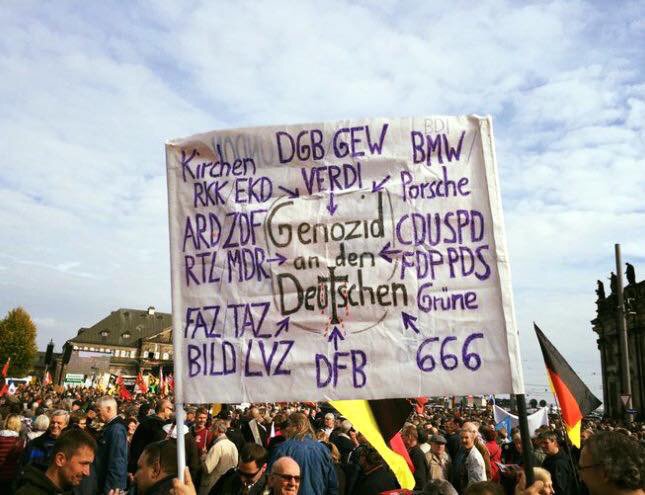 Kirchen
RKK EKD
DGB GEW
VERDI
BDI
BMW
Porsche
ARD ZDF
RTL MDR
Genozid
an den
Deutschen
CDU SPD
FDP PDS
Grüne
FAZ TAZ
BILD LVZ
DFB
666